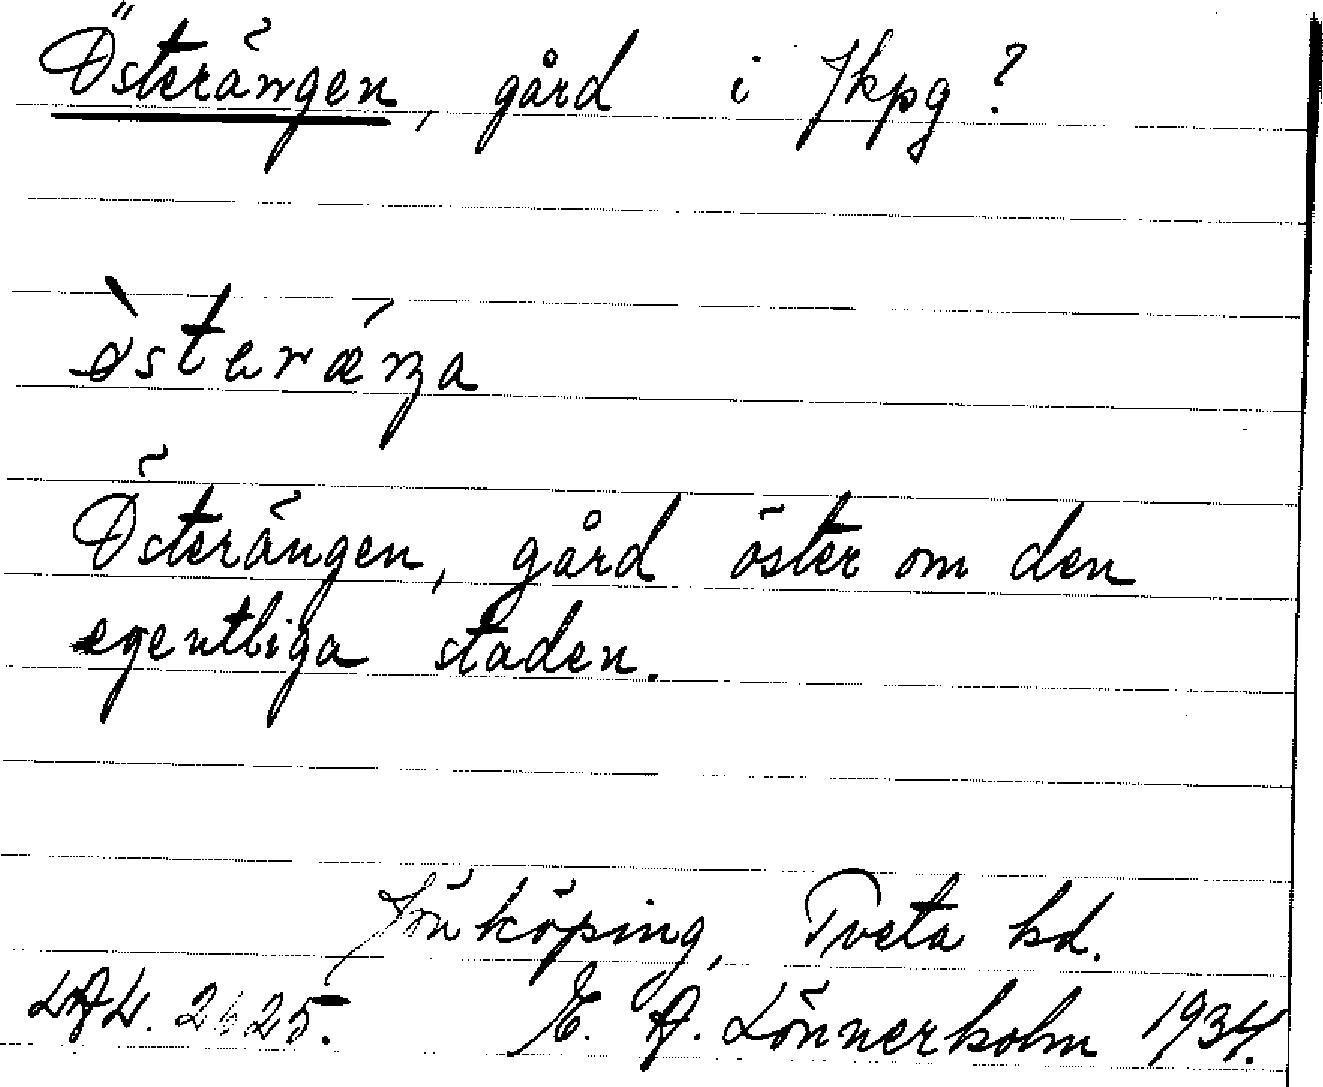 Österängen, gård i Jkpg?
Österängen, gård öster om den
egentliga staden.
Jönköping, Tveta hd.
2625. E. A. Lönnerholm 1934.